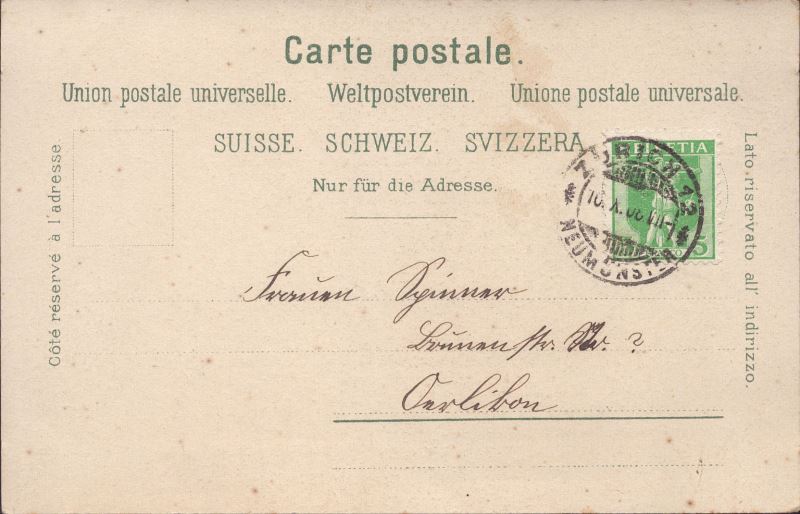 Carte postale.
Union postale universelle. Weltpostverein. Unione postale universale.
SUISSE. SCHWEIZ. SVIZZERA.
Nur für die Adresse.
Côté réservé à l'adresse.
Lato riservato all' indirizzo.
HELVETIA
5
ZÜRICH 12
10.X.08
NEUMÜNSTER
Frauen Spinner
Brunenstr. Nr. ?
Oerlikon